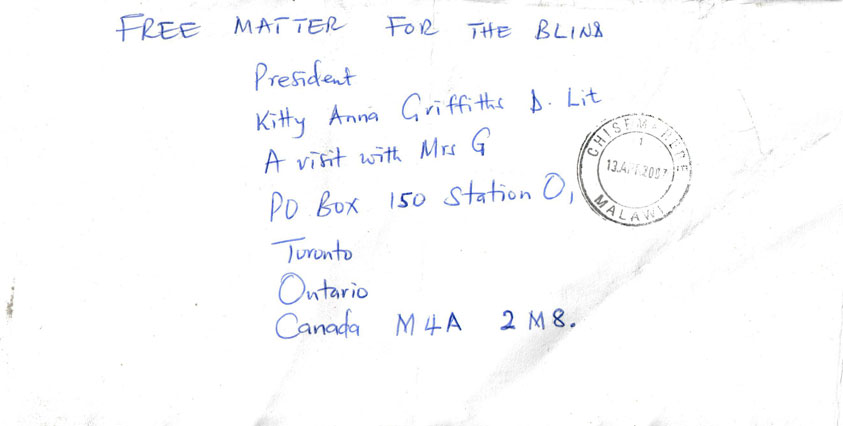 FREE MATTER FOR THE BLIND
President
Kitty Anna Griffiths D. Lit
A visit with Mrs G
PO Box 150 Station O,
Toronto
Ontario
Canada M4A 2M8.
1
13. APR 2007
MALAWI